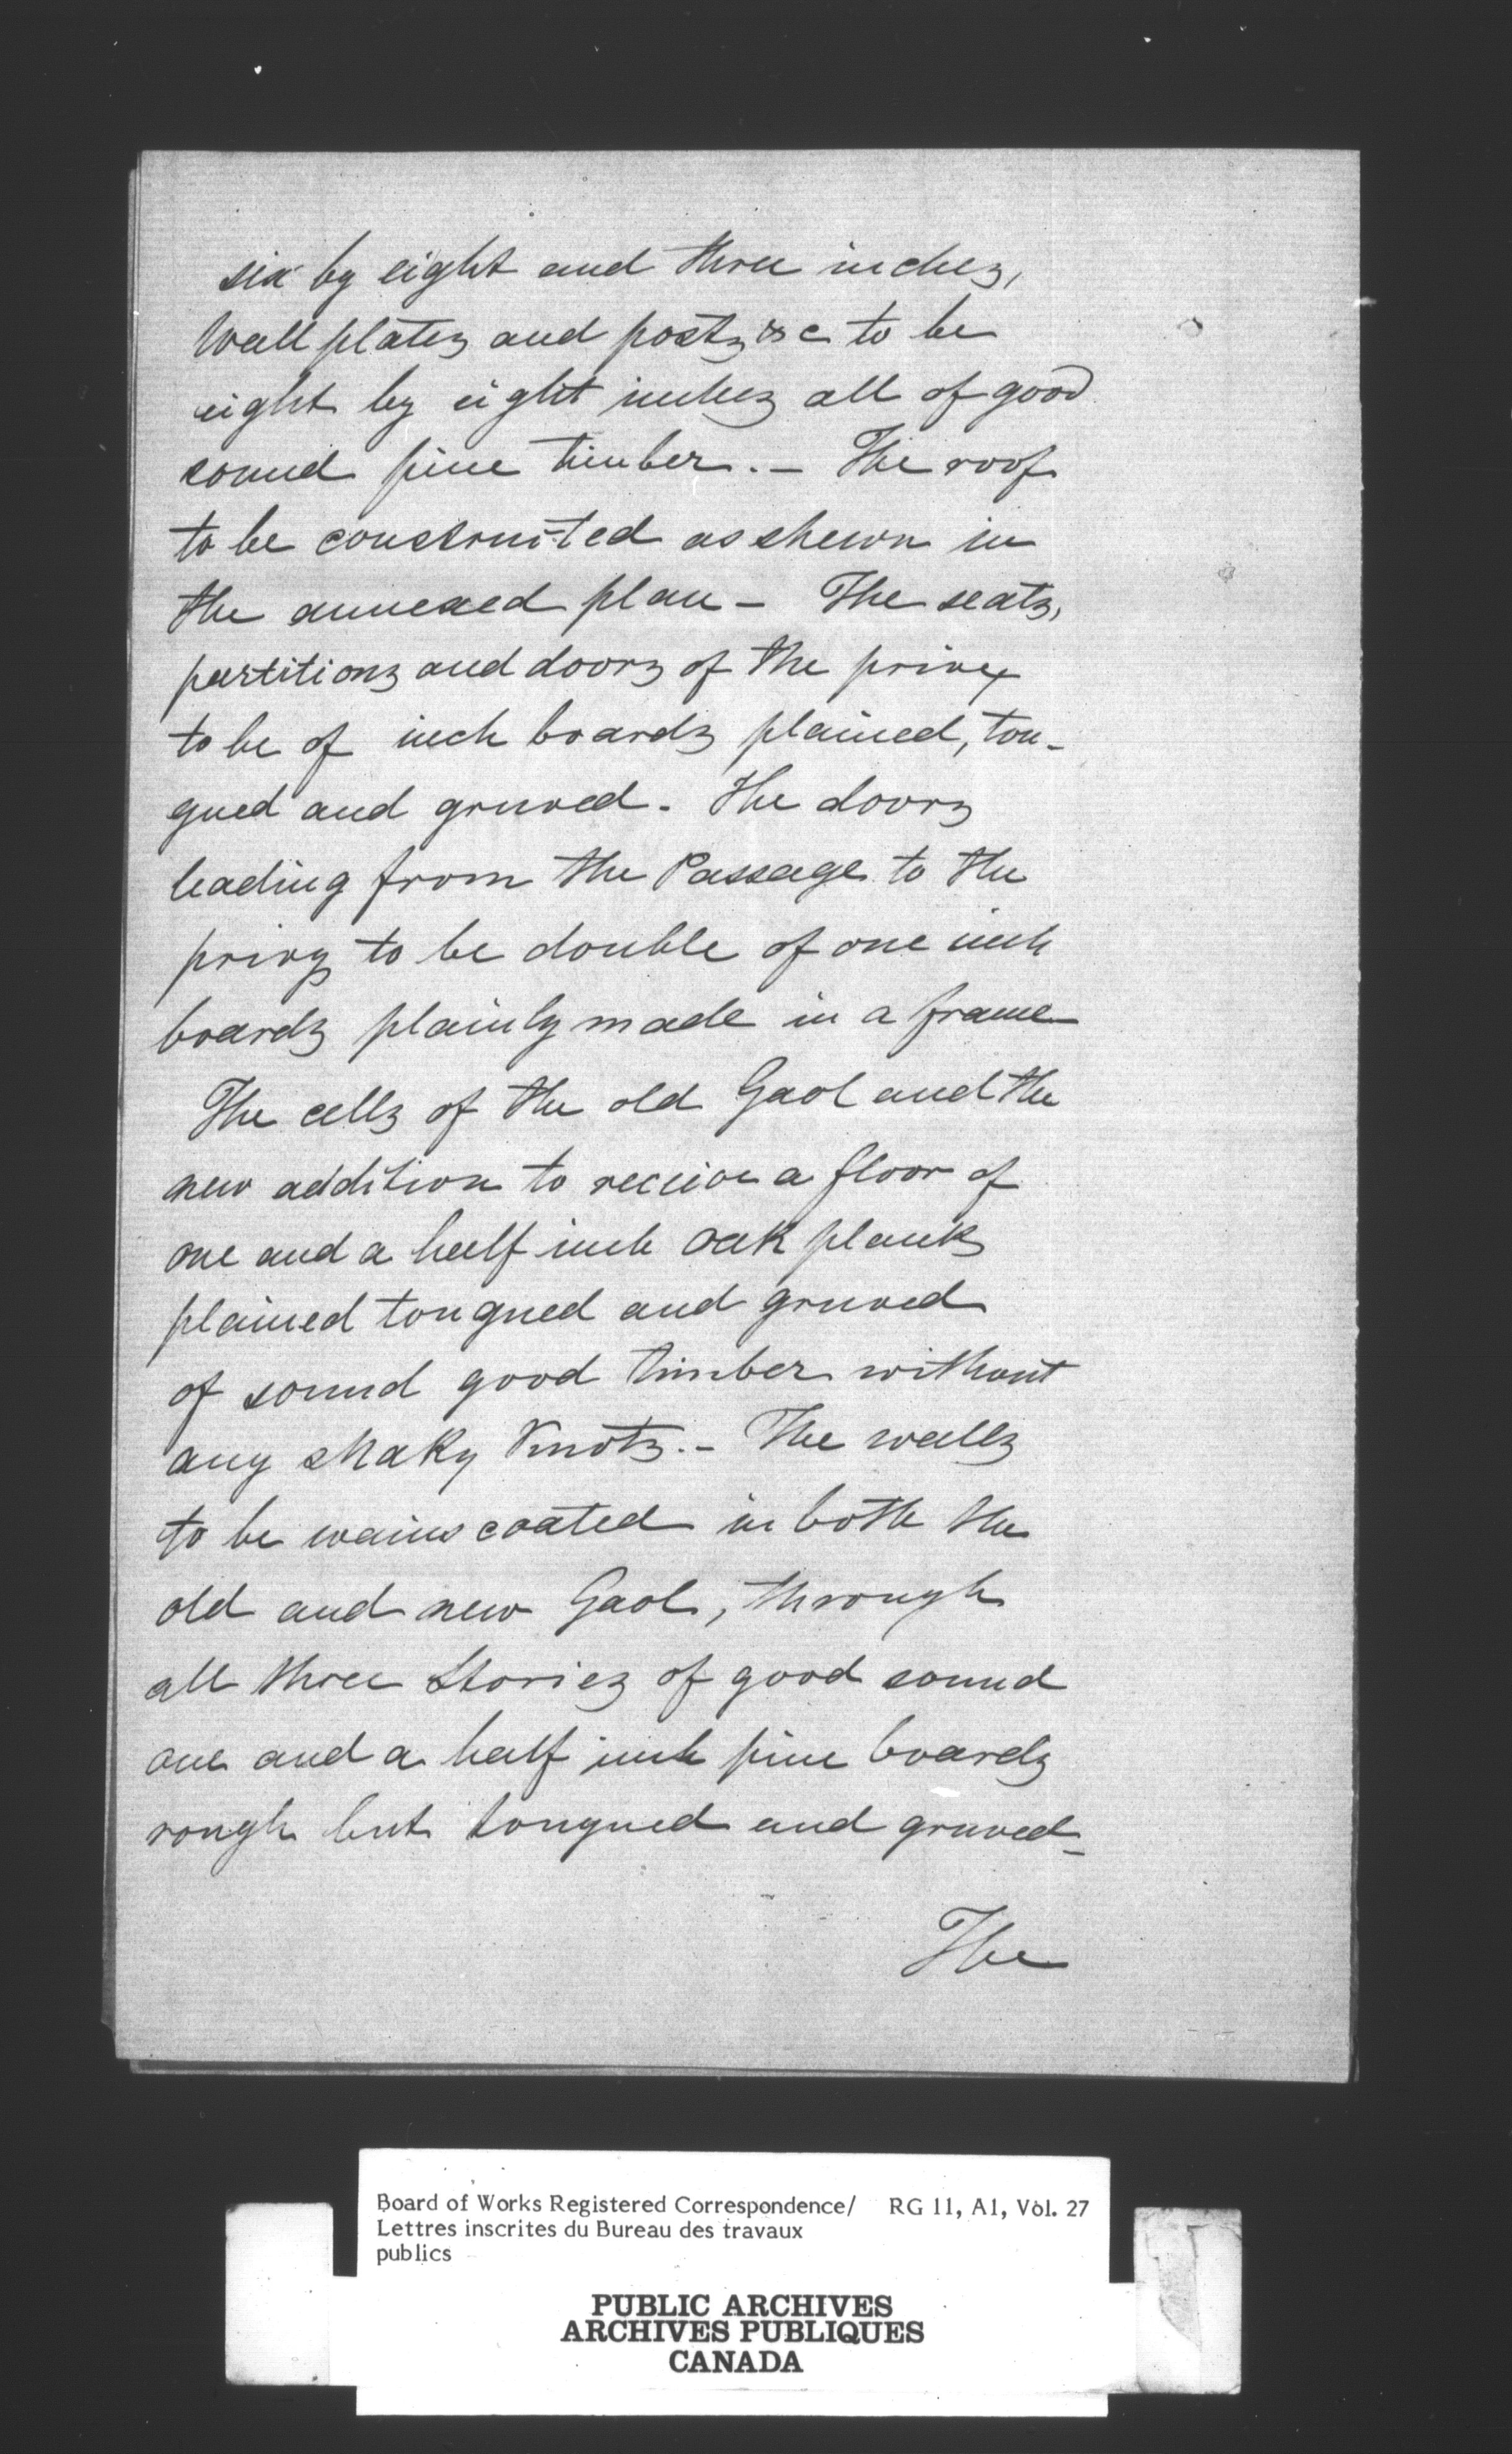 six by eight and three inches,
Wall plates and posts &c to be
eight by eight inches all of good
sound pine timber. — The roof
to be constructed as shewn in
the annexed plan — The seats,
partitions and doors of the privy
to be of inch boards plained, ton-
gued and gruved. The doors
leading from the Passage to the
privy to be double of one inch
boards plainly made in a frame
The cells of the old Gaol and the
new addition to receive a floor of
one and a half inch oak planks
plained tongued and gruved
of sound good timber without
any shaky Knots. — The walls
to be wainscoated in both the
old and new Gaol, through
all three Stories of good sound
one and a half inch pine boards
rough but tongued and gruved —
The
Board of Works Registered Correspondence/ RG 11, A1, Vol. 27
Lettres inscrites du Bureau des travaux
publics
PUBLIC ARCHIVES
ARCHIVES PUBLIQUES
CANADA